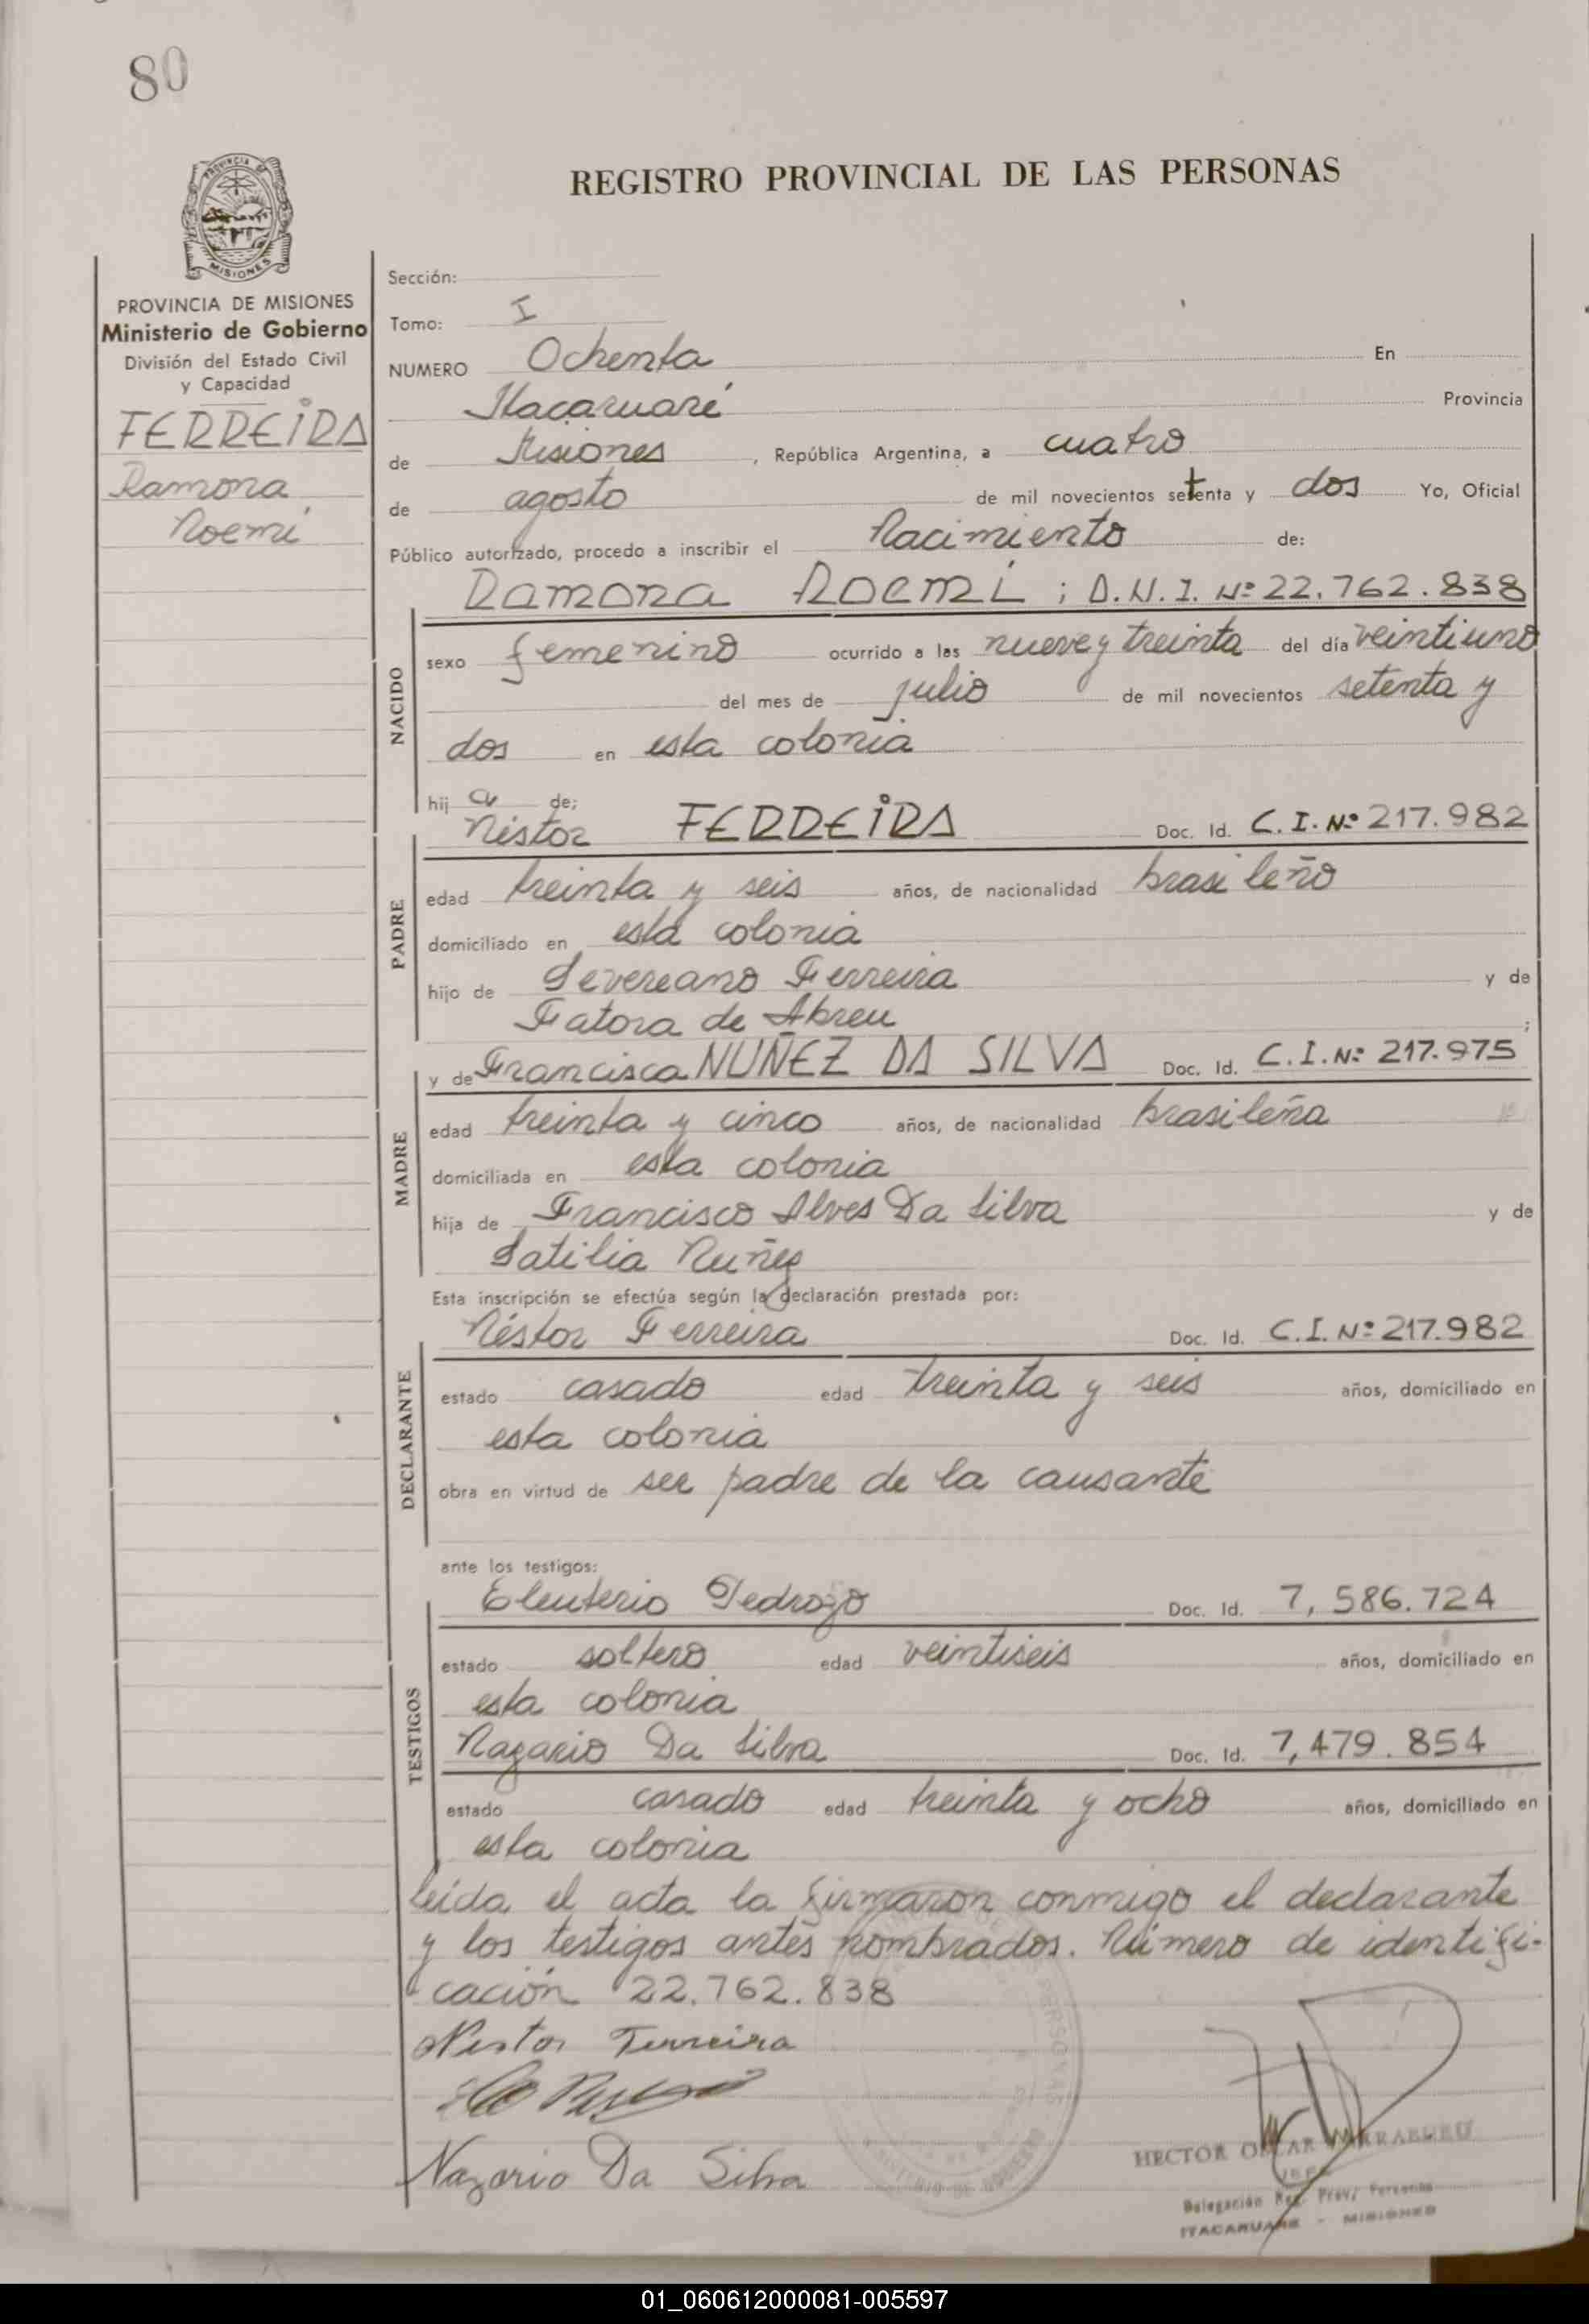 80
REGISTRO PROVINCIAL DE LAS PERSONAS
PROVINCIA DE MISIONES
Ministerio de Gobierno
División del Estado Civil
y Capacidad
FERREIRA
Ramona
Noemí
Sección:
Tomo: I
NUMERO Ochenta En
Itacaruaré Provincia
de Misiones, República Argentina, a cuatro
de agosto de mil novecientos setenta y dos Yo, Oficial
Público autorizado, procedo a inscribir el Nacimiento de:
Ramona Noemí; D.N.I. Nº 22.762.838
NACIDO
sexo femenino ocurrido a las nueve y treinta del día veintiuno
del mes de julio de mil novecientos setenta y
dos en esta colonia
hij a de;
Néstor FERREIRA Doc. Id. C.I. Nº 217.982
PADRE
edad treinta y seis años, de nacionalidad brasileño
domiciliado en esta colonia
hijo de Severeano Ferreira y de
Fatora de Abreu ;
y de Francisca NUÑEZ DA SILVA Doc. Id. C.I. Nº 217.975
MADRE
edad treinta y cinco años, de nacionalidad brasileña
domiciliada en esta colonia
hija de Francisco Alves Da Silva y de
Satilia Nuñez
Esta inscripción se efectúa según la declaración prestada por:
Néstor Ferreira Doc. Id. C.I. Nº 217.982
DECLARANTE
estado casado edad treinta y seis años, domiciliado en
esta colonia
obra en virtud de ser padre de la causante
ante los testigos:
Eleuterio Pedrozo Doc. Id. 7,586.724
TESTIGOS
estado soltero edad veintiseis años, domiciliado en
esta colonia
Nazario Da Silva Doc. Id. 7,479.854
estado casado edad treinta y ocho años, domiciliado en
esta colonia
leída el acta la firmaron conmigo el declarante
y los testigos antes nombrados. Número de identifi-
cación 22.762.838
Nestor Ferreira
Nazario Da Silva
HECTOR OSCAR
JEFE
Delegación Reg. Prov. Personas
ITACARUARE - MISIONES
01_060612000081-005597